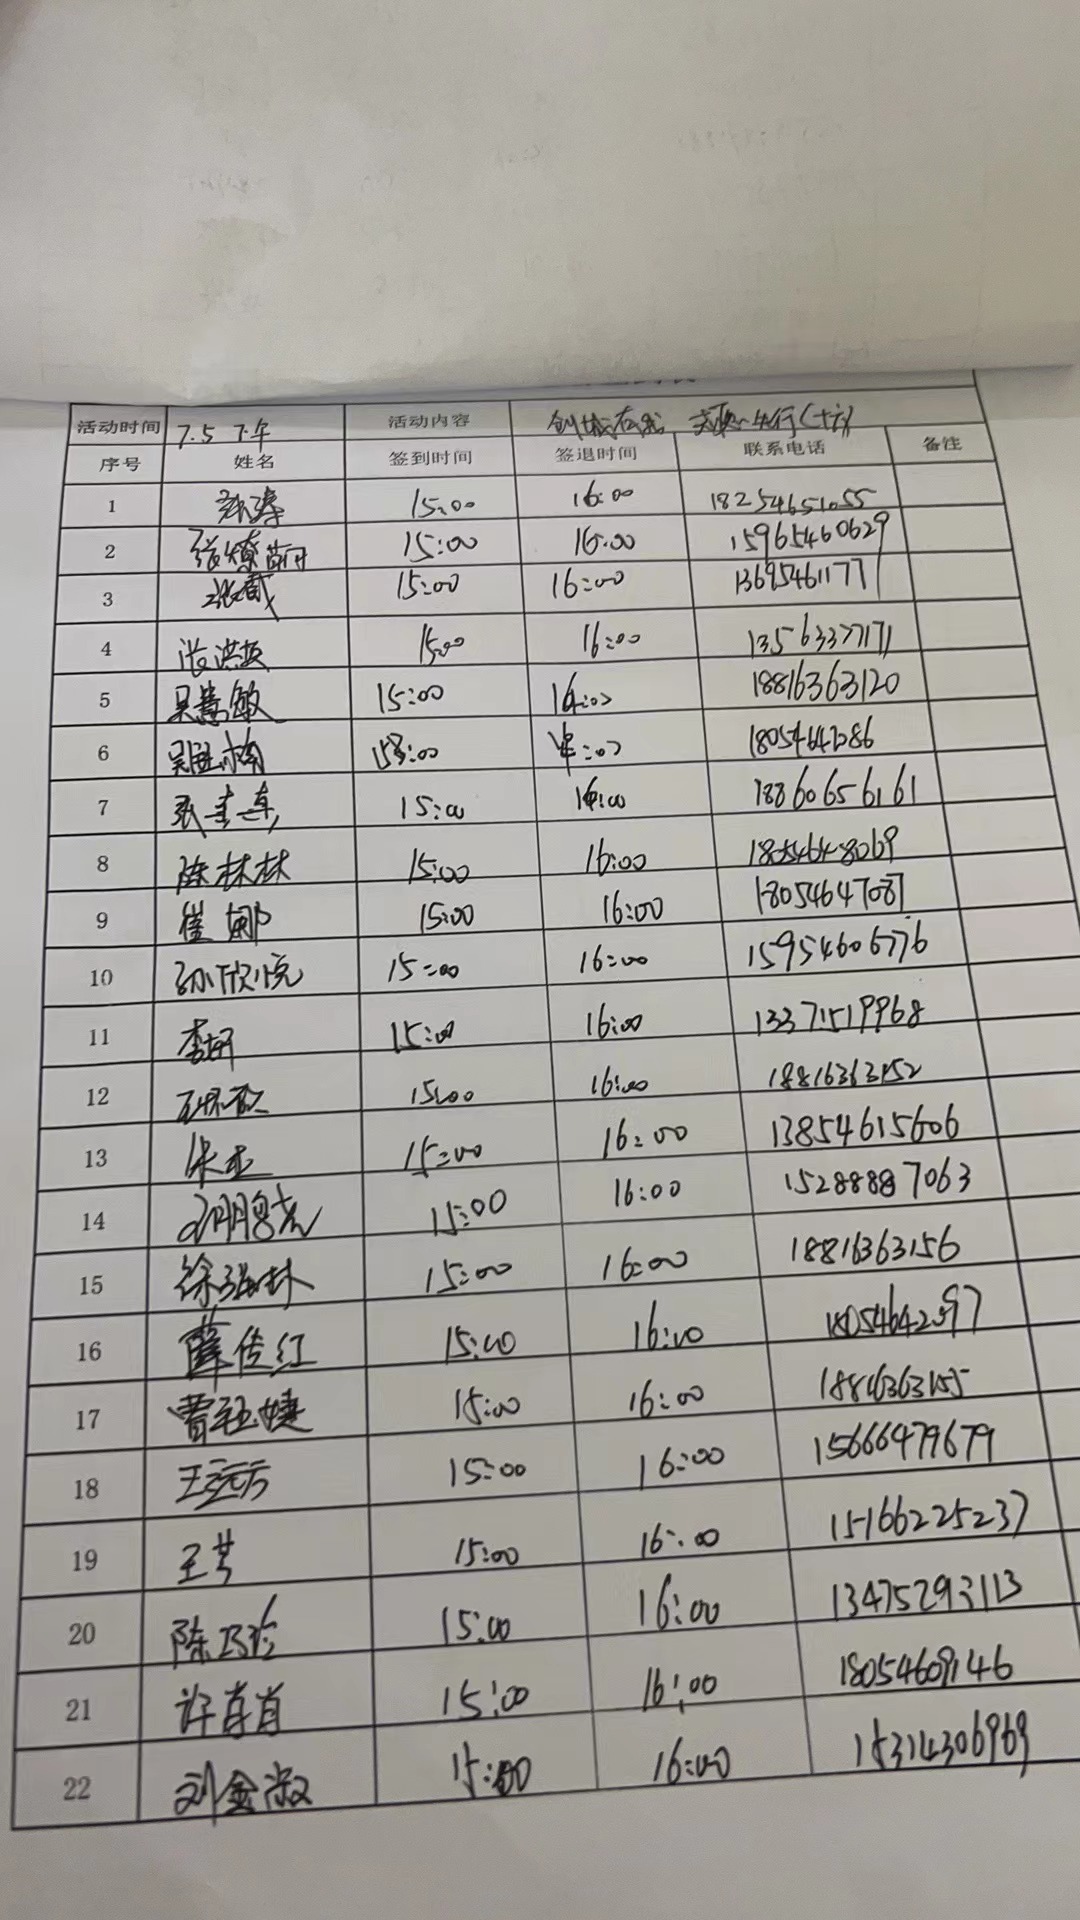 活动时间 7.5 下午 活动内容 创城有我 文明先行(十六)
序号 姓名 签到时间 签退时间 联系电话 备注
1 15:00 16:00 18254651055
2 15:00 16:00 15965460629
3 15:00 16:00 13695461177
4 15:00 16:00 13563377171
5 吴慧敏 15:00 16:00 18816363120
6 15:00
7 15:00 16:00 18860656161
8 陈林林 15:00 16:00 18054648069
9 崔娜 15:00 16:00 18054647087
10 孙欣悦 15:00 16:00 15954606776
11 李妍 15:00 16:00 13371519968
12 15:00 16:00 18816363152
13 15:00 16:00 13854615606
14 15:00 16:00 15288887063
15 徐强林 15:00 16:00 18816363156
16 薛传红 15:00 16:00 18054642597
17 曹钰婕 15:00 16:00 18816363155
18 王远方 15:00 16:00 15666479679
19 王芳 15:00 16:00 15166225237
20 陈巧玲 15:00 16:00 13475293113
21 许肖肖 15:00 16:00 18054609146
22 刘金淑 15:00 16:00 15314306969